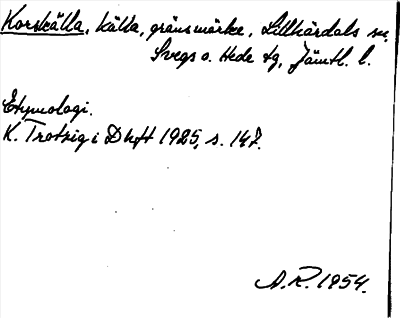 Korskälla, källa, gränsmärke, Lillhärdals sn,
Svegs o. Hede tg, Jämtl. l.
Etymologi.
K. Trotzig i Dhft 1925, s. 147.
A.R. 1954.